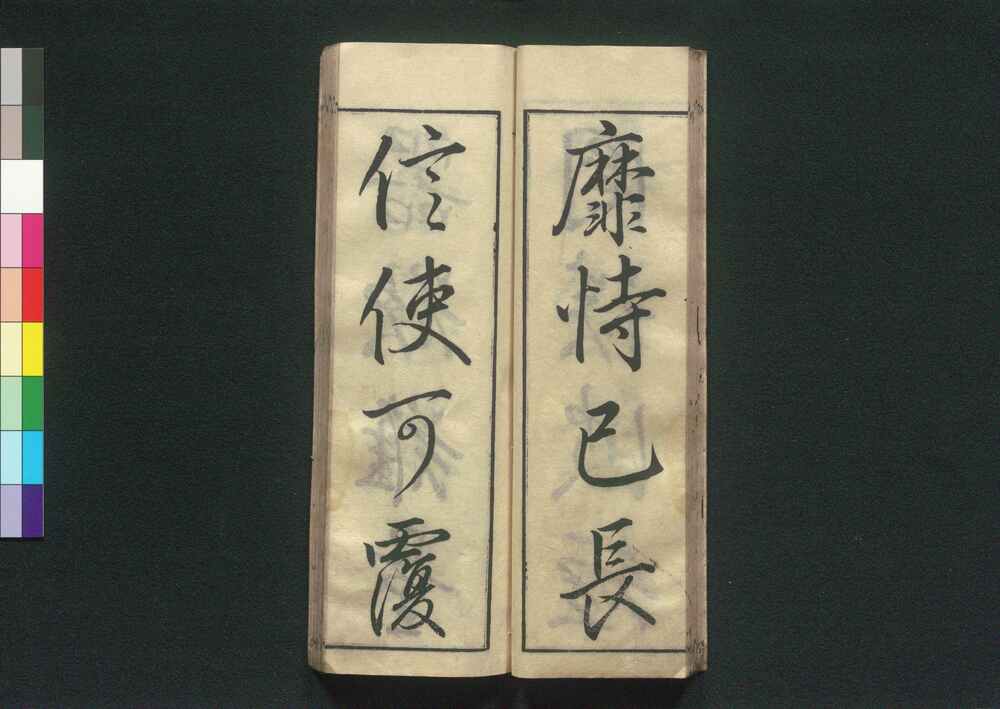 靡恃己長
信使可覆